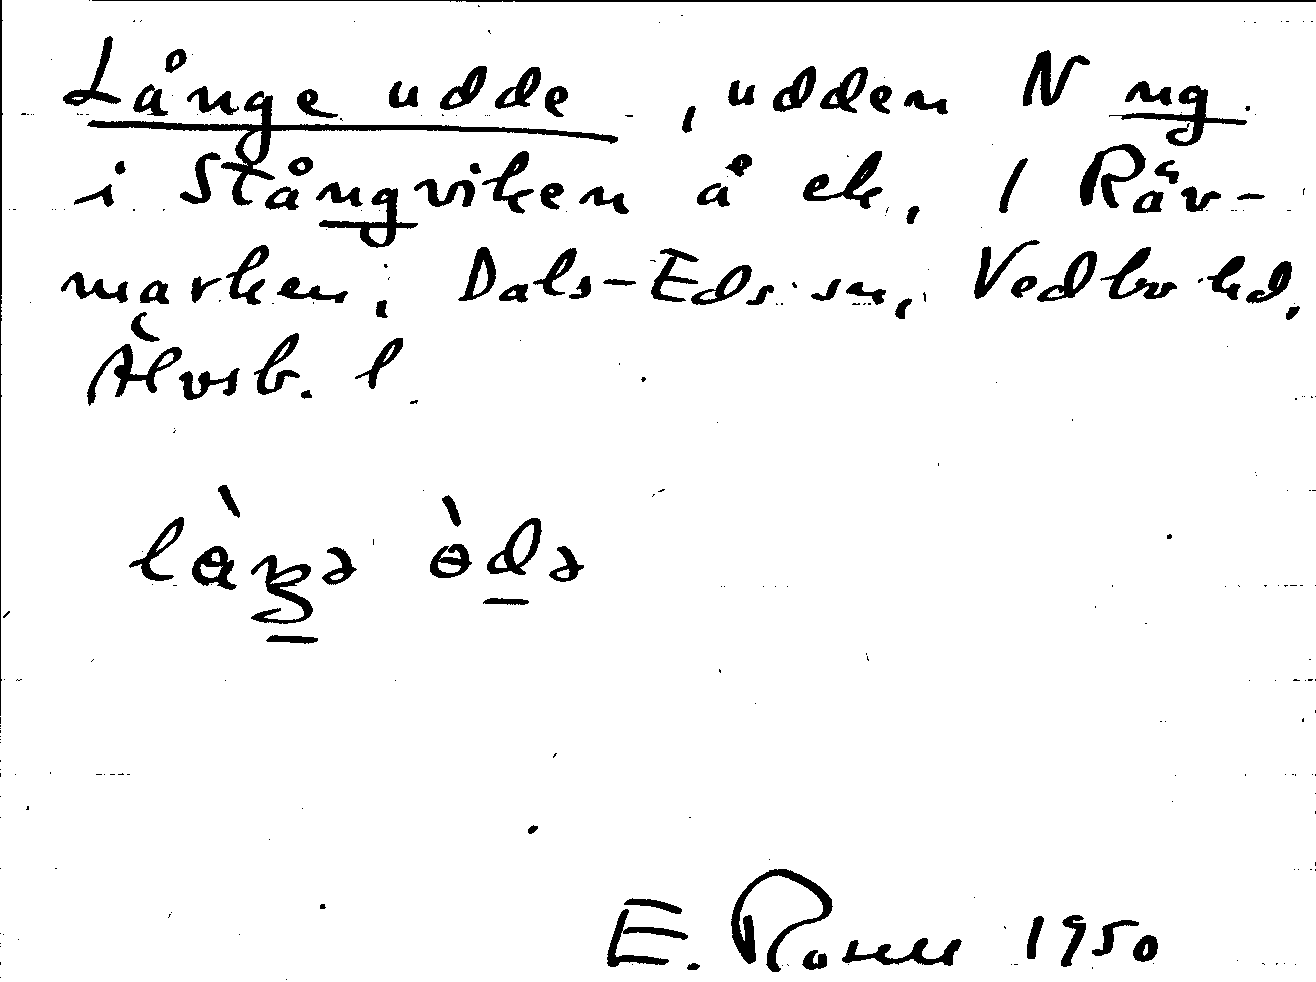 Långe udde, udden N ng
i Stångviken å ek, 1 Räv-
marken, Dals-Eds sn, Vedbo hd,
Älvsb. l.
E. Rosell 1950